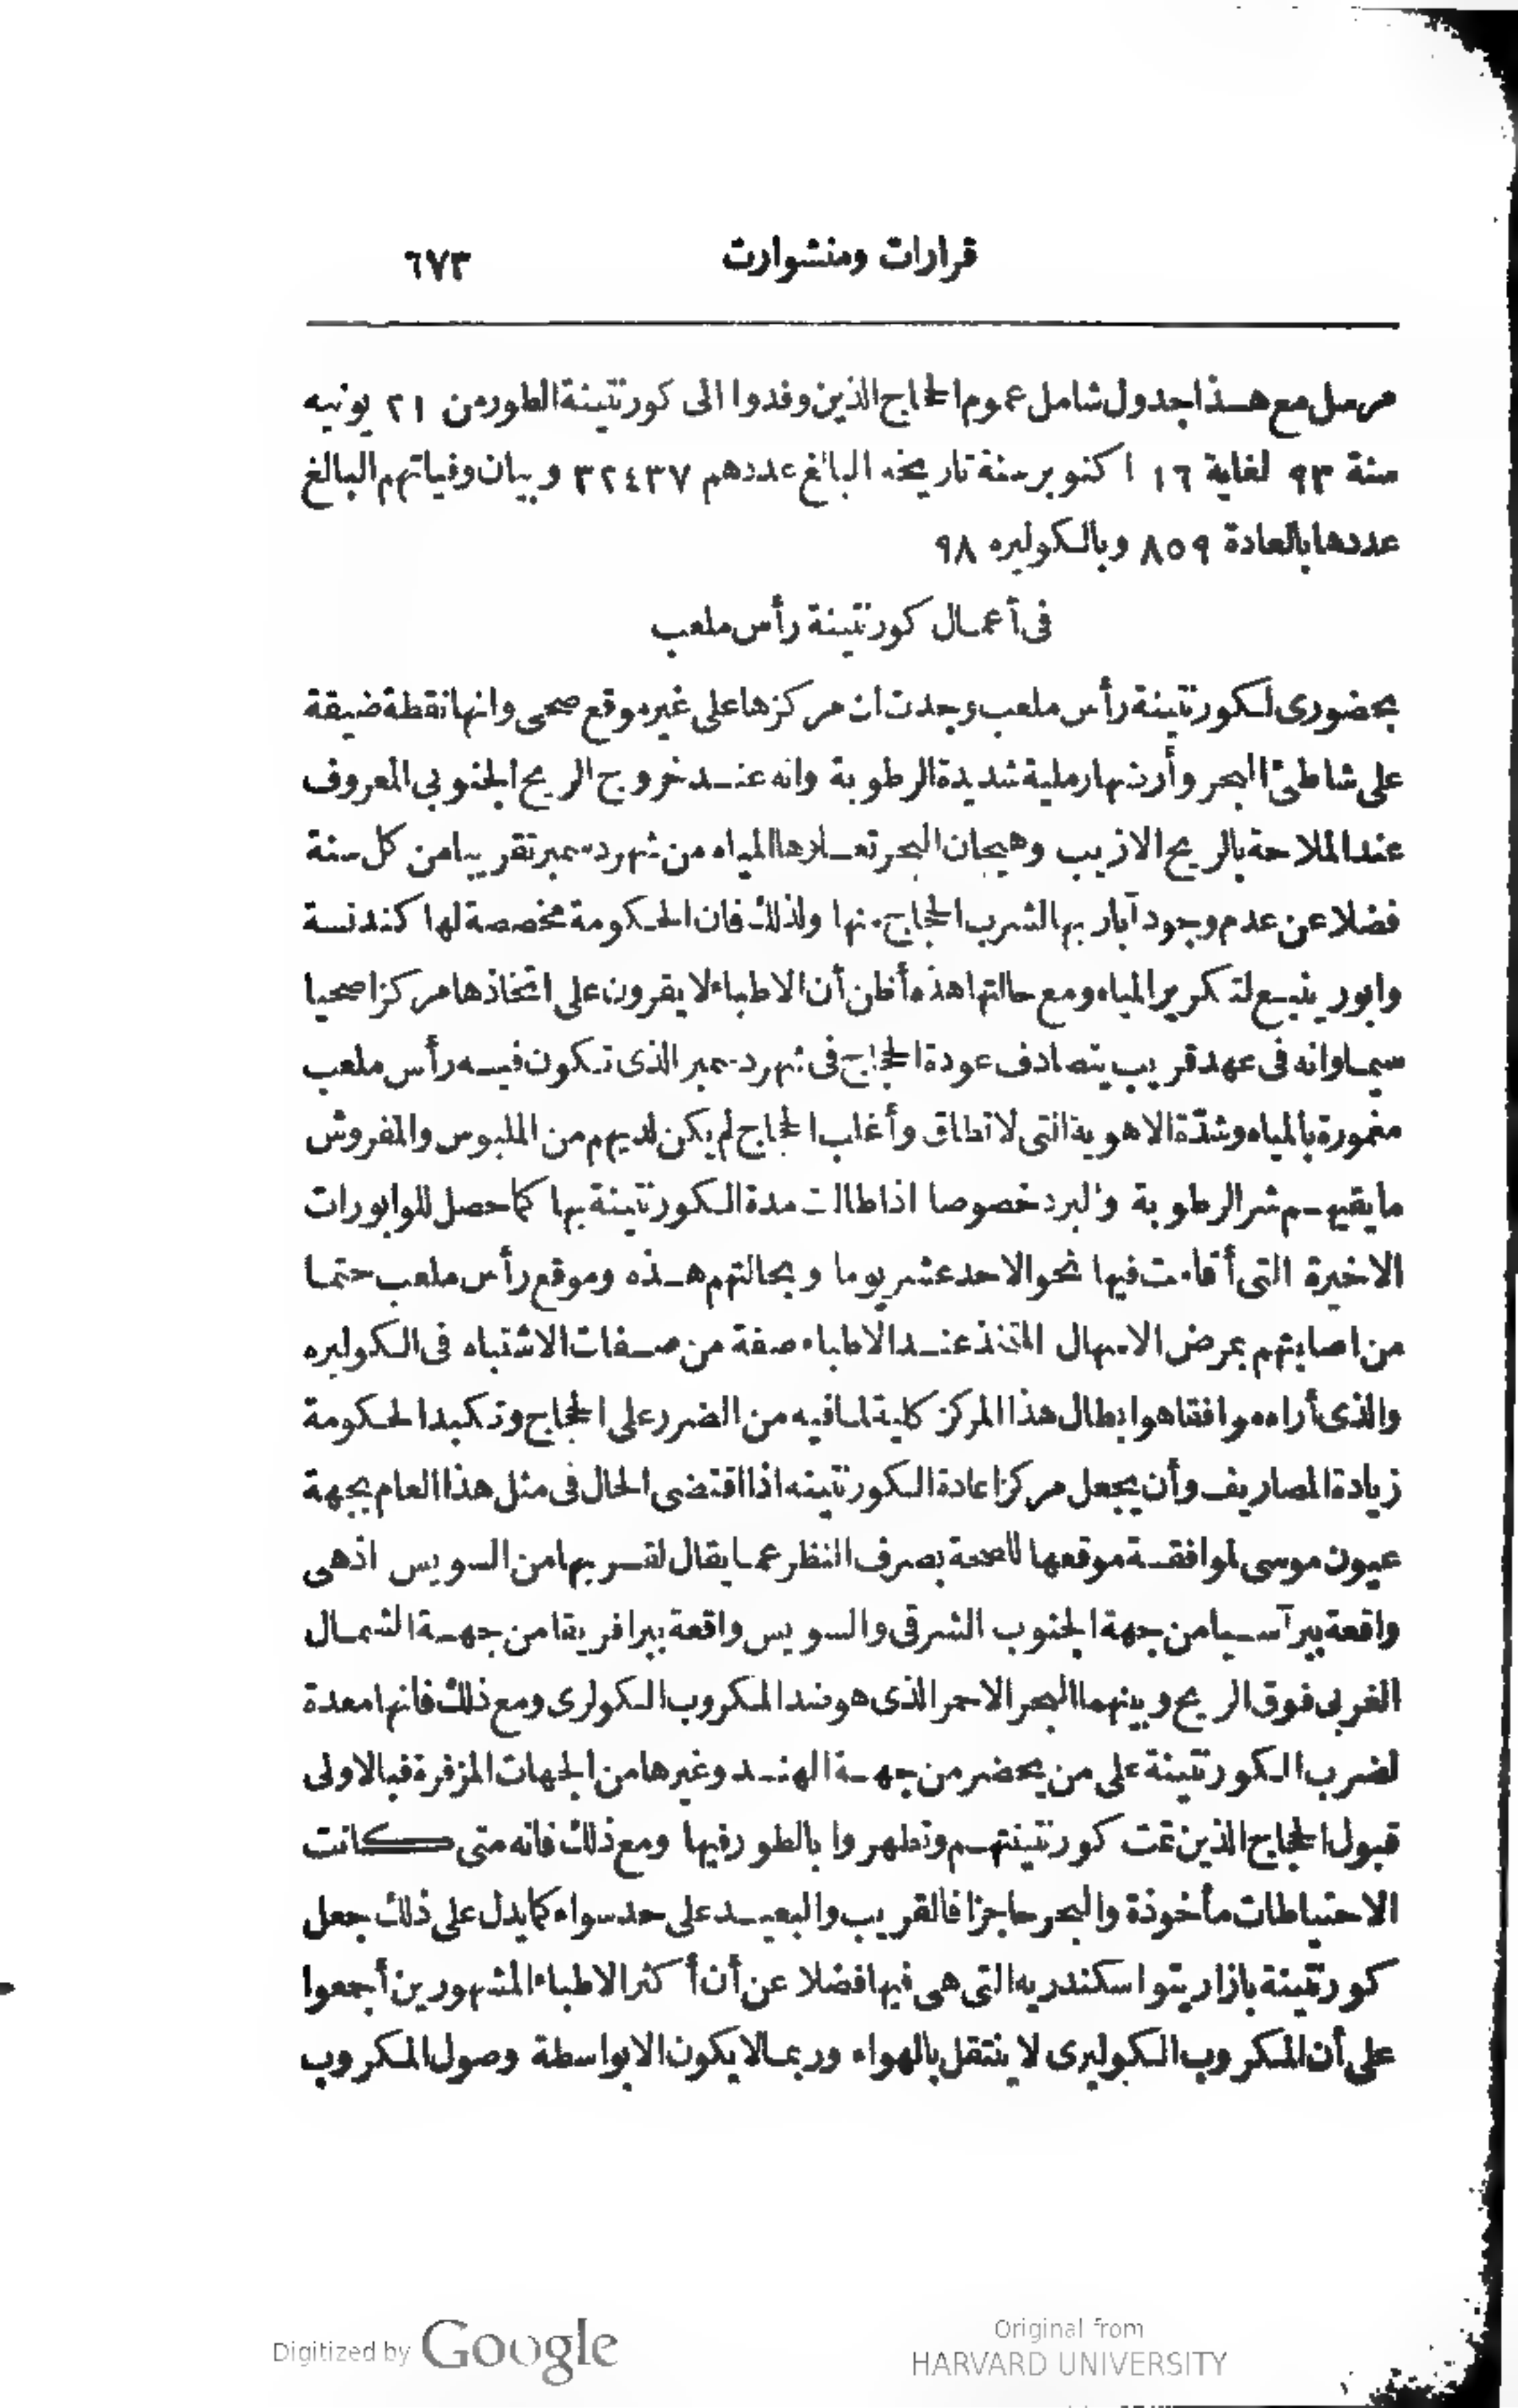 قرارات ومنشوارت ٦٧٣
مرسل مع هذا جدول شامل عموم الحجاج الذين وفدوا الى كورنتينة الطور من ٢١ يونيه
سنة ٩٣ لغاية ١٦ اكتوبر سنة تاريخه البالغ عددهم ٣٢٤٣٧ وبيان وفياتهم البالغ
عددها بالعادة ٨٥٩ وبالكوليره ٩٨
فى أعمال كورنتينة رأس ملعب
بحضورى لكورنتينة رأس ملعب وجدت ان مركزها على غير موقع صحى وانها نقطة ضيقة
على شاطئ البحر وأرضها رملية شديدة الرطوبة وانه عند خروج الريح الجنوبي المعروف
عند الملاحة بالريح الازيب وهيجان البحر تعلوها المياه من شهر دسمبر تقريبا من كل سنة
فضلا عن عدم وجود آبار بها لشرب الحجاج منها ولذلك فان الحكومة مخصصة لها كندنسة
وابور ينبع لتكرير المياه ومع حالتها هذه أظن أن الاطباء لا يقرون على اتخاذها مركزا صحيا
سيما وانه فى عهد قريب يتصادف عودة الحجاج فى شهر دسمبر الذى تكون فيه رأس ملعب
مغمورة بالمياه وشدّة الاهوية التى لا تطاق وأغلب الحجاج لم يكن لديهم من الملبوس والمفروش
ما يقيهم شر الرطوبة والبرد خصوصا اذا طالت مدة الكورنتينة بها كما حصل للوابورات
الاخيرة التى أقامت فيها نحو الاحد عشر يوما وبحالتهم هذه وموقع رأس ملعب حتما
من اصابتهم بمرض الاسهال المتخذ عند الاطباء صفة من صفات الاشتباه فى الكوليره
والذى أراه موافقا هو ابطال هذا المركز كلية لما فيه من الضرر على الحجاج وتكبد الحكومة
زيادة المصاريف وأن يجعل مركز اعادة الكورنتينه اذا اقتضى الحال فى مثل هذا العام بجهة
عيون موسى لموافقة موقعها للصحة بصرف النظر عما يقال لقربها من السويس اذ هى
واقعة ببر آسيا من جهة الجنوب الشرقى والسويس واقعة ببر افريقا من جهة الشمال
الغربى فوق الريح وبينهما البحر الاحمر الذى هو ضد المكروب الكولرى ومع ذلك فانها معدة
لضرب الكورنتينة على من يحضر من جهة الهند وغيرها من الجهات المزفرة فبالاولى
قبول الحجاج الذين تمت كورنتينتهم وتطهروا بالطور فيها ومع ذلك فانه متى كانت
الاحتياطات مأخوذة والبحر حاجزا فالقريب والبعيد على حد سواء كما يدل على ذلك جعل
كورنتينة بازاريتو اسكندريه التى هى فيها فضلا عن أن أكثر الاطباء المشهورين أجمعوا
على أن المكروب الكوليرى لا ينتقل بالهواء وربما لا يكون الا بواسطة وصول المكروب
Digitized by Google
Original from
HARVARD UNIVERSITY